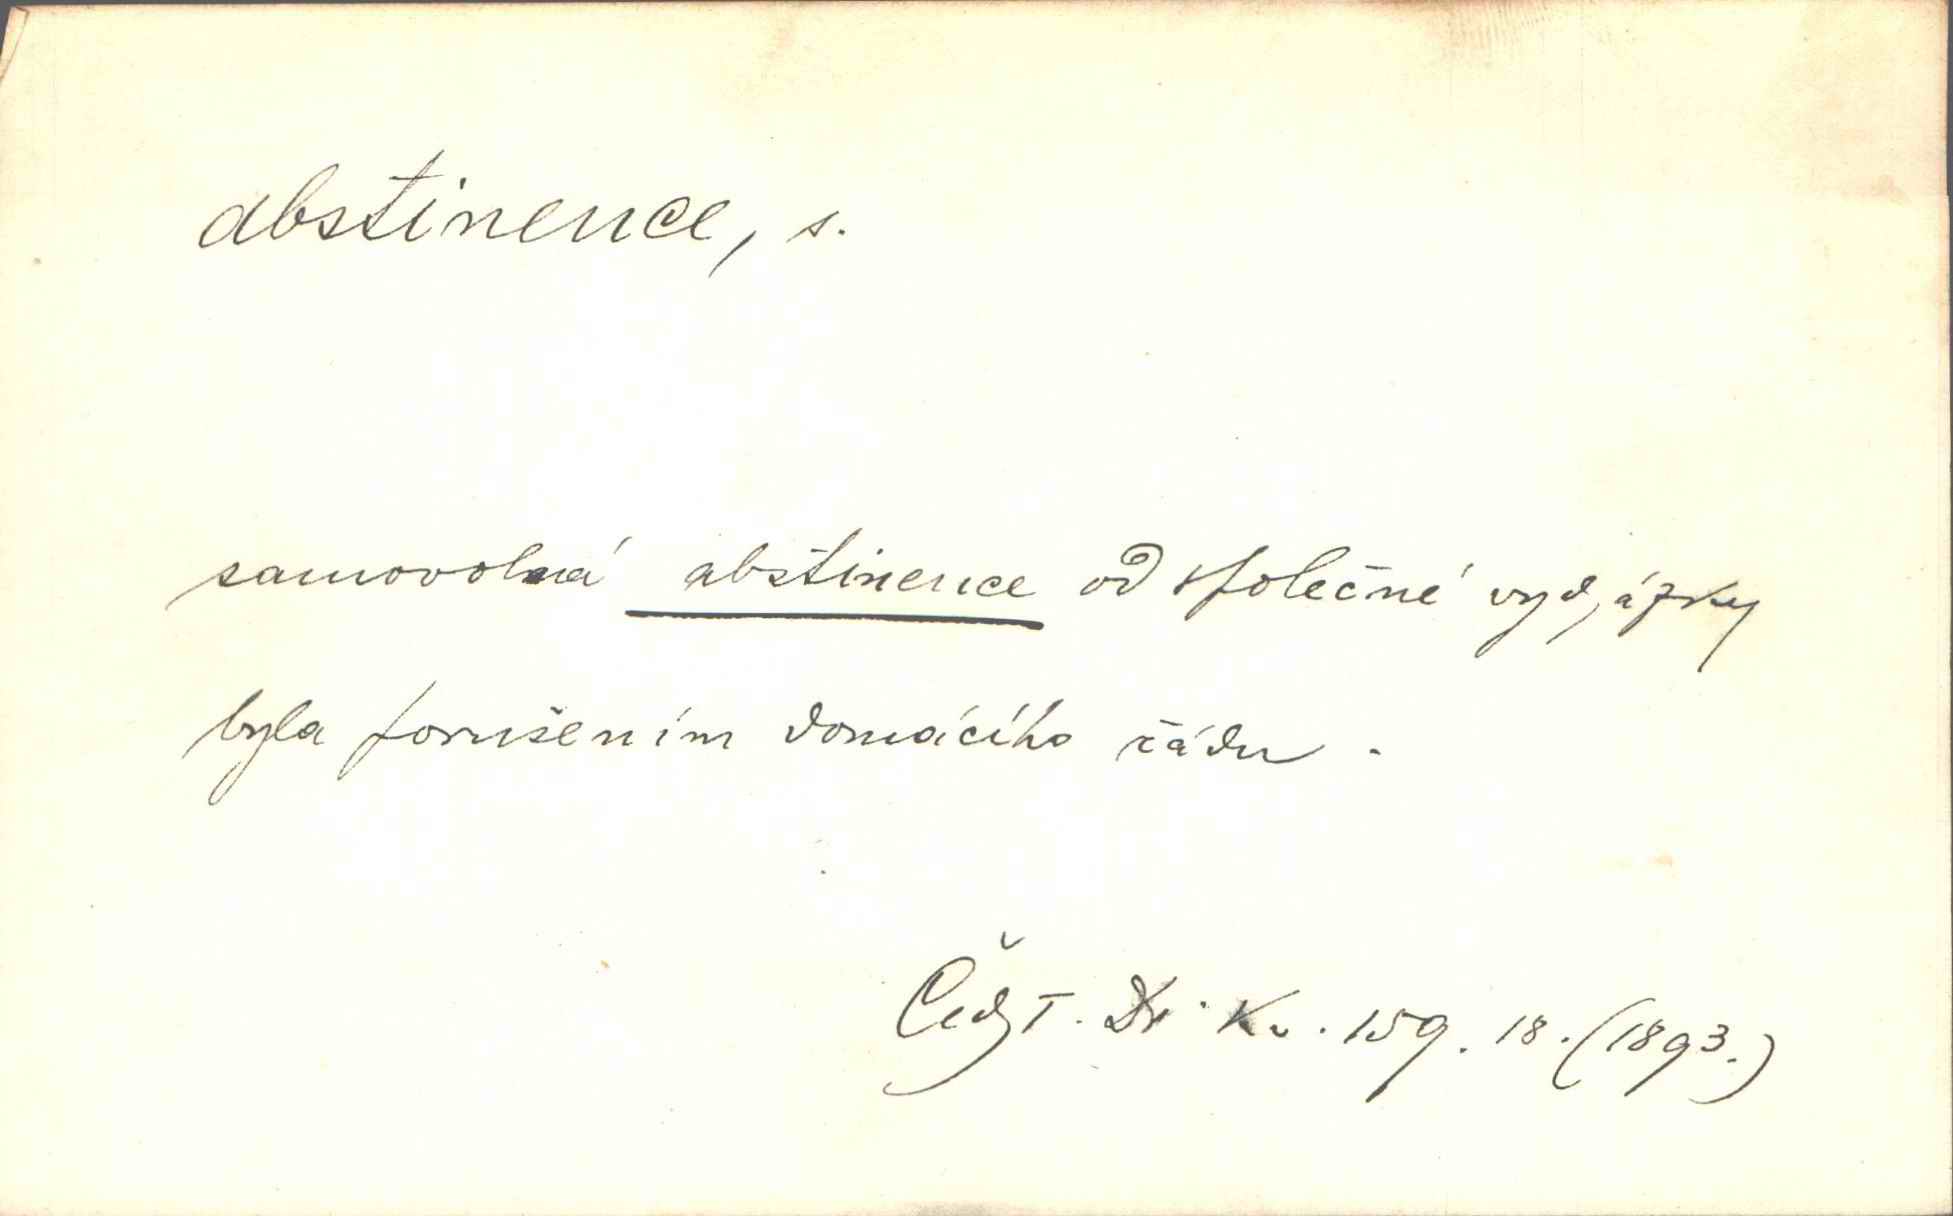 abstinence, s.
samovolná abstinence od společné vyjížďky
byla porušením domácího řádu.
Kv. 159. 18. (1893.)